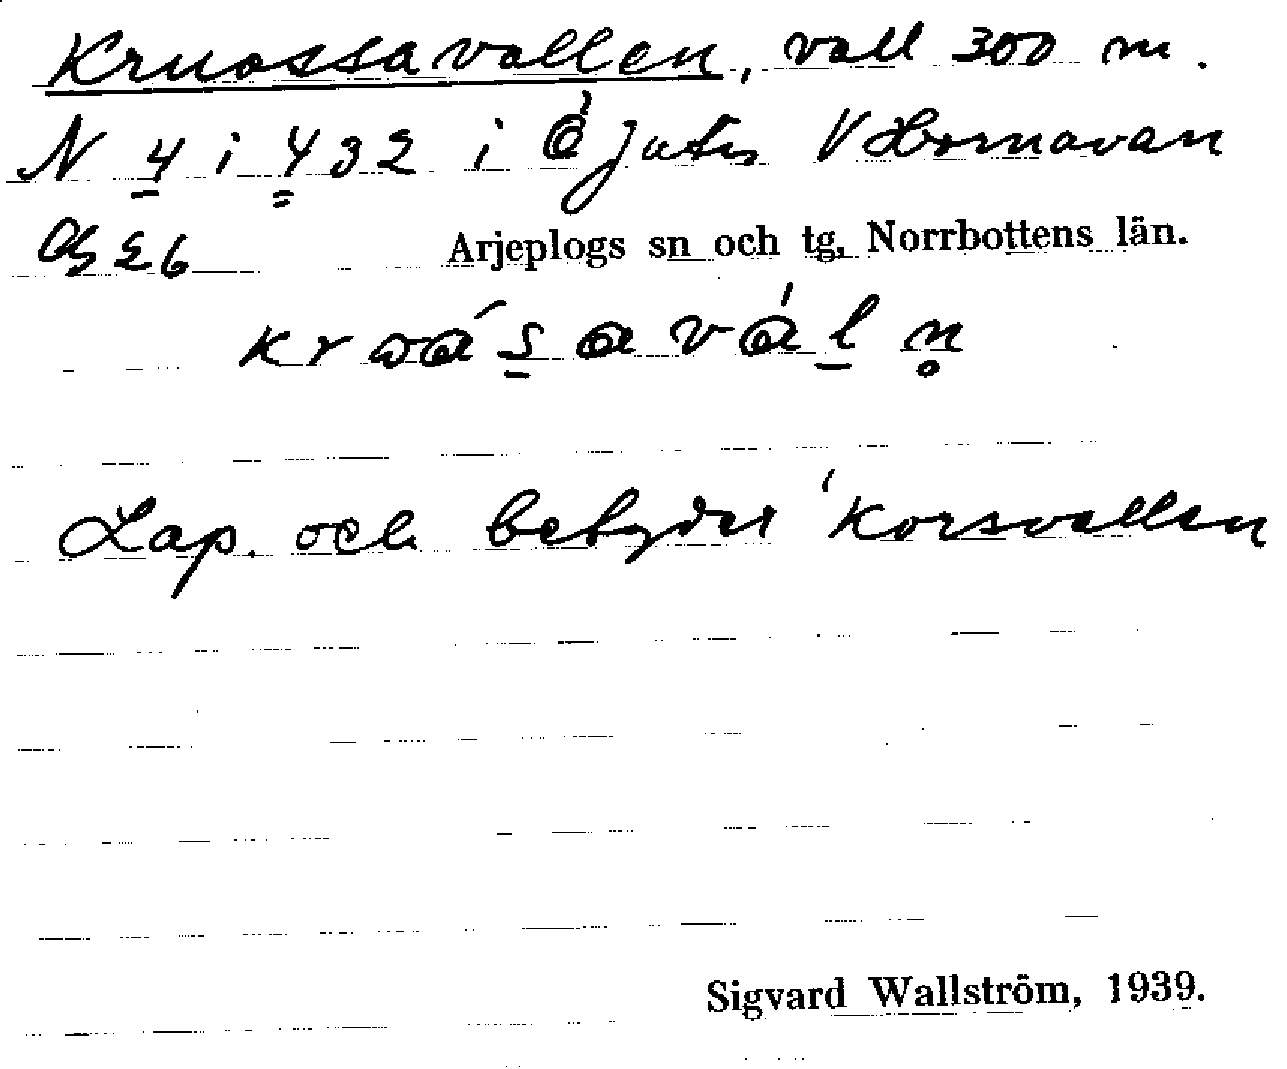 Kruossavallen, vall 300 m.
N 4 i 432 i Öjutis V Hornavan
26 Arjeplogs sn och tg, Norrbottens län.
Lap. och betyder 'Korsvallen
Sigvard Wallström, 1939.